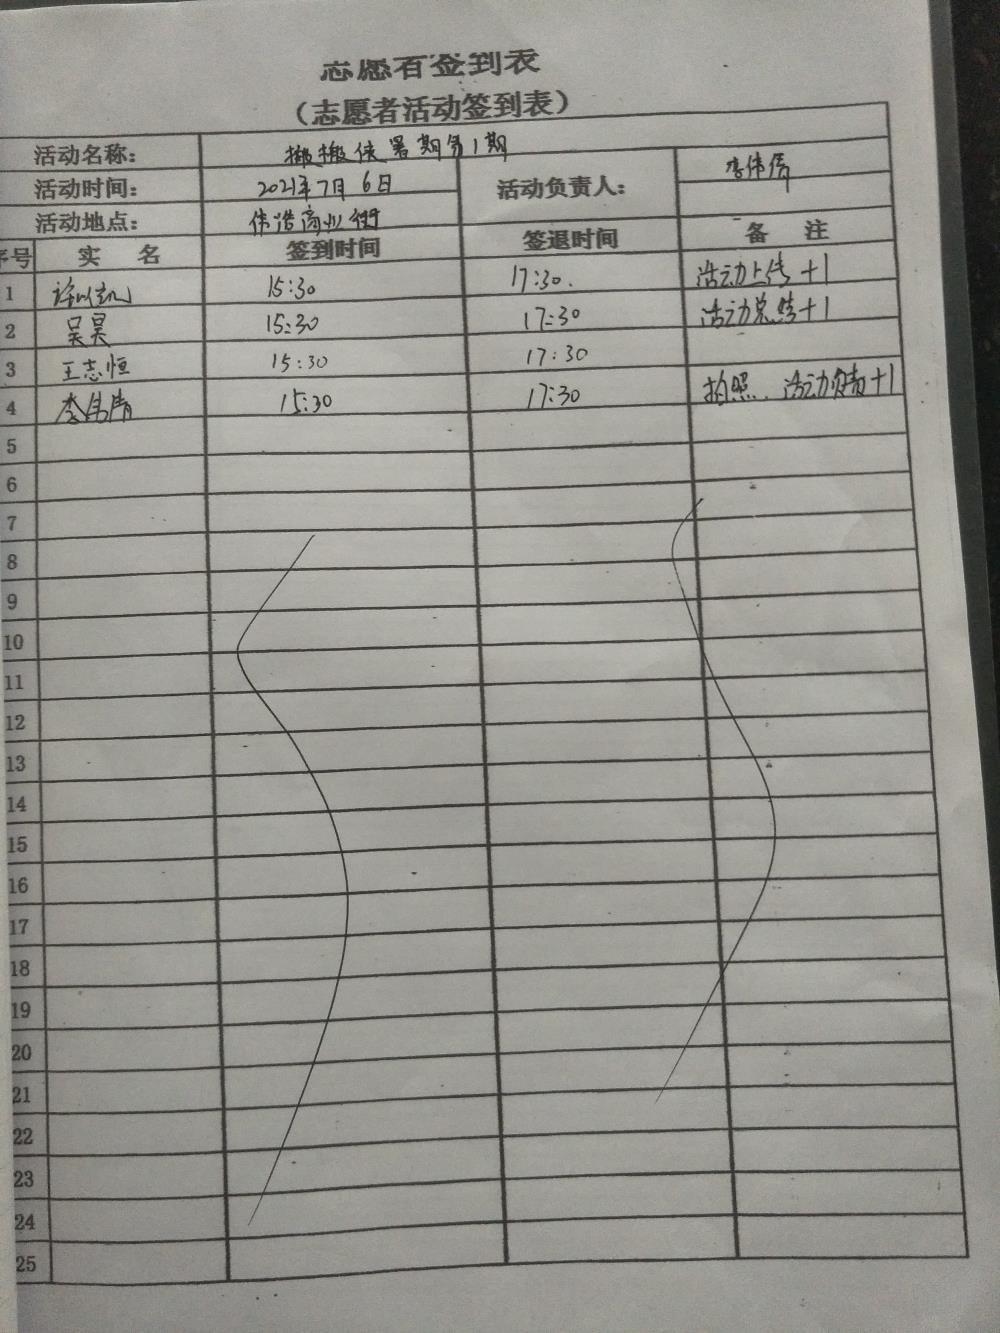 志愿者签到表
（志愿者活动签到表）
活动名称： 搬搬侠暑期第1期
活动时间： 2021年7月6日 活动负责人： 李伟倩
活动地点： 伟浩商业街
序号 实 名 签到时间 签退时间 备 注
1 15:30 17:30. 活动上传+1
2 吴昊 15:30 17:30 活动总结+1
3 王志恒 15:30 17:30
4 李伟倩 15:30 17:30 拍照、活动负责+1
5
6
7
8
9
10
11
12
13
14
15
16
17
18
19
20
21
22
23
24
25